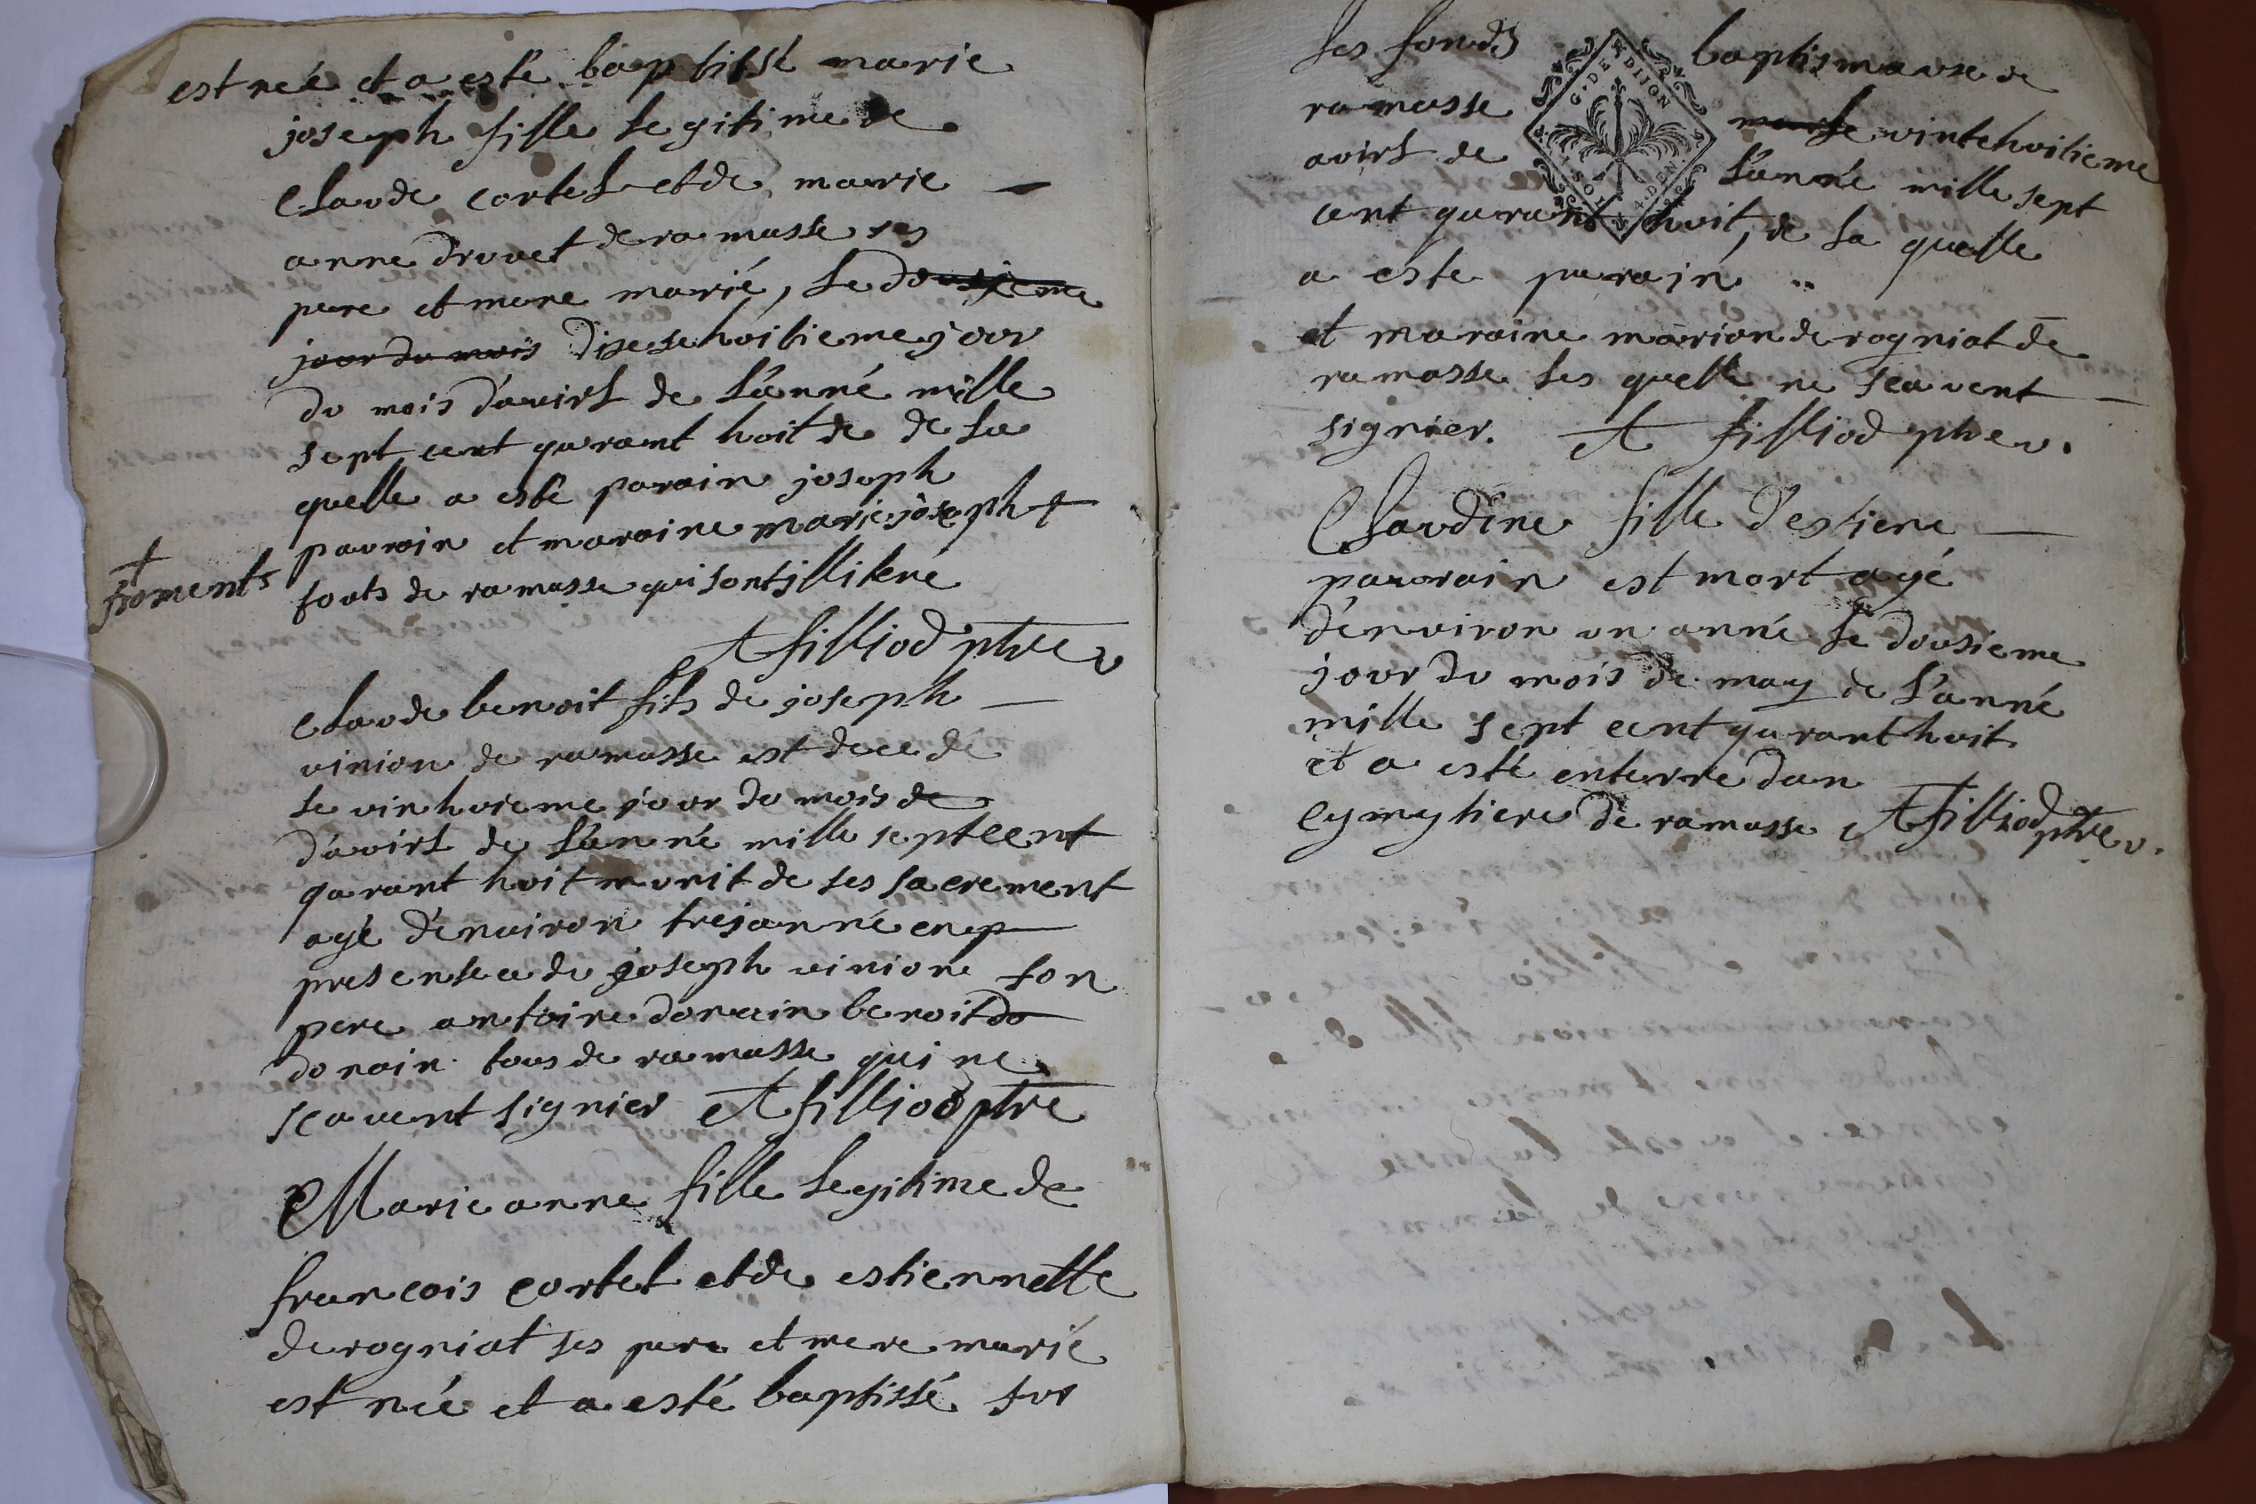 est neé et a esté baptissé marie
joseph fille legitime de
Claude cortet et de marie
anne drouet de ramasse ses
pere et mere marié, le dousieme
jour du mois diseshoitieme jour
du mois d'avirl de l'anné mille
sept cent quarant hoit de de la
quelle a esté parain joseph
pauvrain et maraine marie joseph +
+
froments
touts de ramasse qui sont illiteré
A filliod ptre v
Claude benoit fils de joseph
vinion de ramasse est decedé
le vinhoieme jour du mois de
d'avirl de l'anné mille sept cent
qarant hoit munit de ses sacrement
agé d'enuiron tres anné en p
presentce de joseph vinion son
pere antoine donain benoit do
donain tous de ramasse qui ne
scavent signier A filliod ptre
Marie anne fille legitime de
francois cortet et de estiennette
derogniat ses pere et mere marié
est née et a esté baptissé sur
les fonds baptismause de
ramasse marse vintehoitieme
avirl de l'anné mille sept
cent quarant hoit, de la quelle
a este parain ..
et maraine marion derogniat de
ramasse les quelle ne scavent
signier. A filliod ptre v.
Claudine fille d'estiene
pauvrain est mort agé
d'environ un anné le dousieme
jour du mois de may de l'anné
mille sept cent quarant hoit
et a esté enterre dan
cymytiere de ramasse A filliod ptre v.
G. DE DIJON
SOL 4. DEN